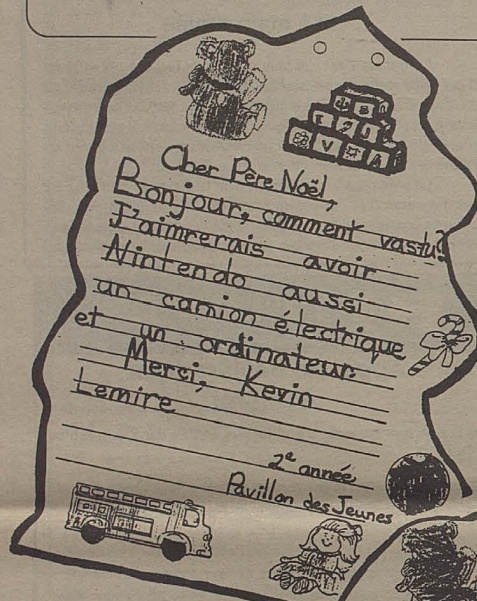 Cher Père Noël,
Bonjour, comment vastu?
J'aimrerais avoir
Nintendo aussi
un camion électrique
et un ordinateur.
Merci, Kevin
Lemire
2e année
Pavillon des Jeunes